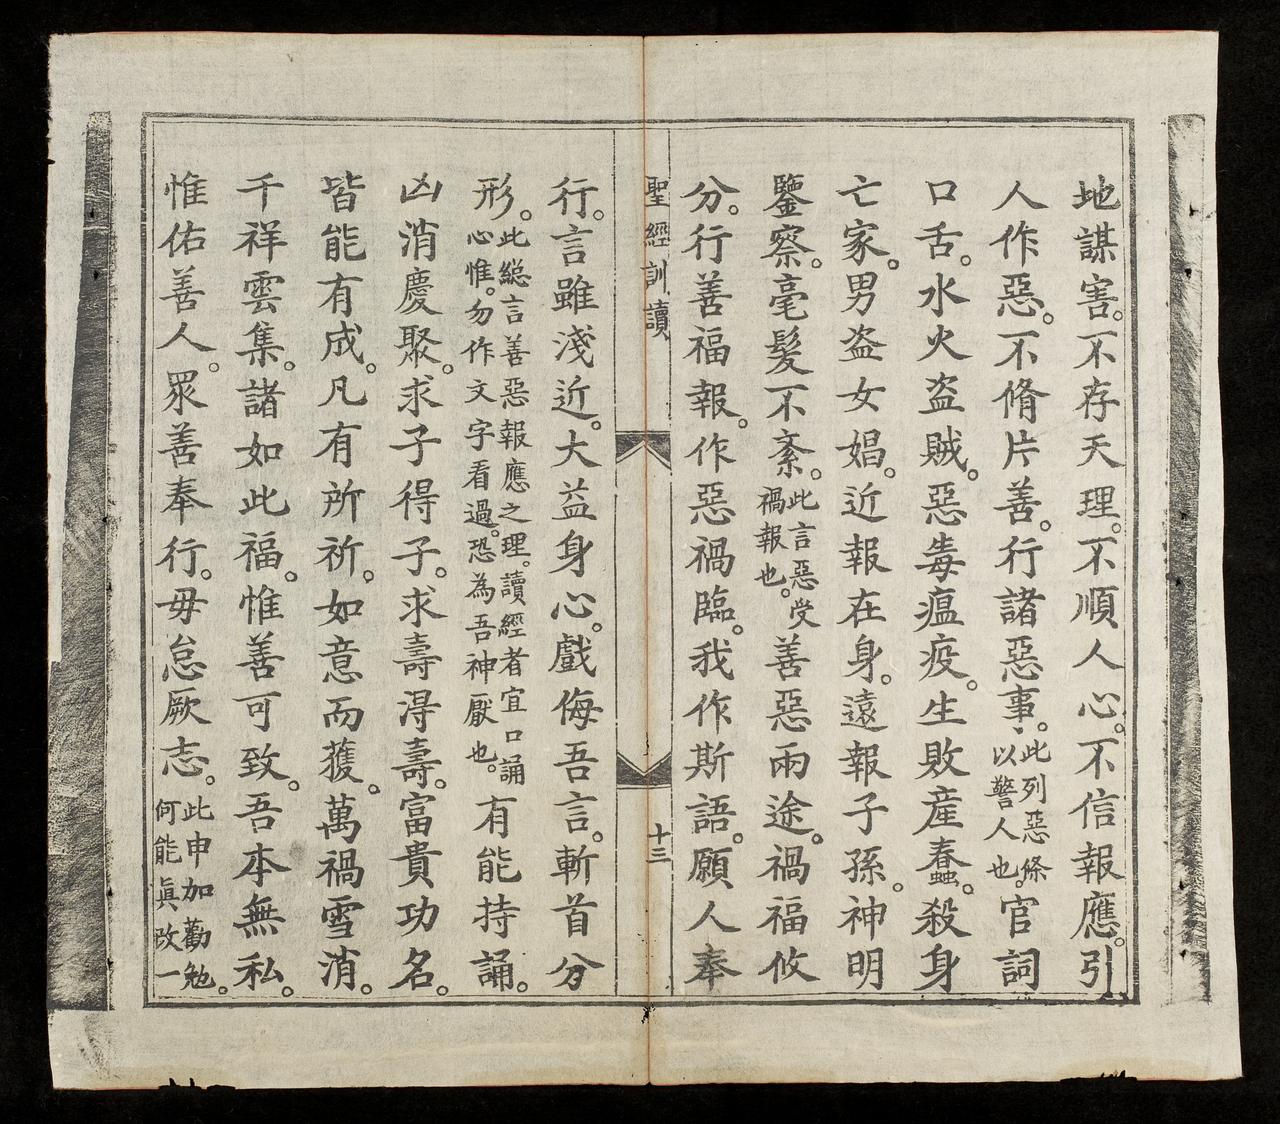 地謀害。不存天理。不順人心。不信報應。引
人作惡。不脩片善。行諸惡事。此列惡條以警人也。官詞
口舌。水火盗賊。惡毒瘟疫。生敗產蠢。殺身
亡家。男盗女娼。近報在身。遠報子孫。神明
鑒察。毫髮不紊。此言惡受禍報也。善惡兩途。禍福攸
分。行善福報。作惡禍臨。我作斯語。願人奉
聖經訓讀
十三
行。言雖淺近。大益身心。戲侮吾言。斬首分
形。此總言善惡報應之理。讀經者宜口誦心惟。勿作文字看過。恐為吾神厭也。有能持誦。
凶消慶聚。求子得子。求壽得壽。富貴功名。
皆能有成。凡有所祈。如意而獲。萬禍雪消。
千祥雲集。諸如此福。惟善可致。吾本無私。
惟佑善人。眾善奉行。毋怠厥志。此申加勸勉。何能眞改一